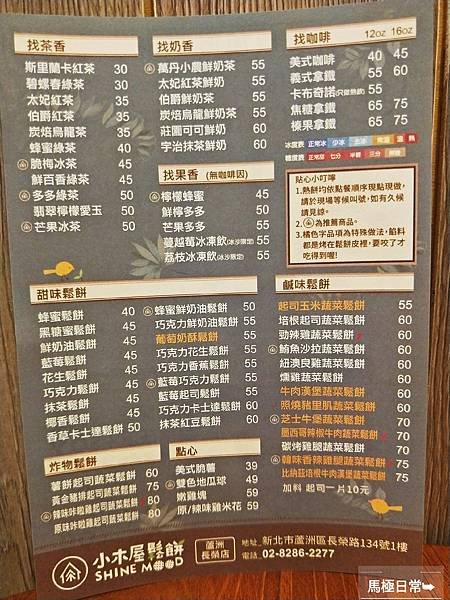 找茶香
斯里蘭卡紅茶 30
碧螺春綠茶 30
太妃紅茶 35
伯爵紅茶 35
炭焙烏龍茶 35
蜂蜜綠茶 40
脆梅冰茶 45
鮮百香綠茶 45
多多綠茶 50
翡翠檸檬愛玉 50
芒果冰茶 50
找奶香
萬丹小農鮮奶茶 55
太妃紅茶鮮奶 55
伯爵鮮奶茶 55
炭焙烏龍鮮奶茶 55
莊園可可鮮奶 60
宇治抹茶鮮奶 60
找果香 (無咖啡因)
檸檬蜂蜜 45
鮮檸多多 50
芒果多多 55
蔓越莓冰凍飲(冰沙限定) 55
荔枝冰凍飲(冰沙限定) 55
找咖啡 12oz 16oz
美式咖啡 40 45
義式拿鐵 55 60
卡布奇諾(只做熱飲) 55
焦糖拿鐵 65 75
榛果拿鐵 65 75
冰度表 正常冰 少冰 去冰 常溫 溫 熱
糖度表 正常甜 七分 半糖 三分 無糖
貼心小叮嚀
1.熱餅均依點餐順序現點現做,
請於現場等候叫號,如有久候
請見諒。
2.為推薦商品。
3.橘色字品項為特殊做法,餡料
都是烤在鬆餅皮裡,要咬了才
吃得到喔!
甜味鬆餅
蜂蜜鬆餅 40
黑糖蜜鬆餅 40
鮮奶油鬆餅 45
藍莓鬆餅 45
花生鬆餅 45
巧克力鬆餅 45
抹茶鬆餅 45
椰香鬆餅 45
香草卡士達鬆餅 50
蜂蜜鮮奶油鬆餅 50
巧克力鮮奶油鬆餅 55
葡萄奶酥鬆餅 55
巧克力花生鬆餅 55
巧克力香蕉鬆餅 55
藍莓巧克力鬆餅 55
藍莓起司鬆餅 55
巧克力卡士達鬆餅 60
抹茶紅豆鬆餅 60
鹹味鬆餅
起司玉米蔬菜鬆餅 55
培根起司蔬菜鬆餅 60
勁辣雞蔬菜鬆餅 60
鮪魚沙拉蔬菜鬆餅 60
紐澳良雞蔬菜鬆餅 60
燻雞蔬菜鬆餅 60
牛肉漢堡蔬菜鬆餅 60
照燒豬里肌蔬菜鬆餅 60
芝士牛堡蔬菜鬆餅 70
墨西哥辣椒牛肉蔬菜鬆餅 70
碳烤雞腿蔬菜鬆餅 70
韓味香辣雞腿蔬菜鬆餅 70
比納茲培根牛肉漢堡蔬菜鬆餅 75
加料 起司一片10元
炸物鬆餅
薯餅起司蔬菜鬆餅 60
黃金豬排起司蔬菜鬆餅 75
辣味咔啦雞起司蔬菜鬆餅 80
原味咔啦雞起司蔬菜鬆餅 80
點心
美式脆薯 39
雙色地瓜球 49
嫩雞塊 59
原/辣味雞米花 59
小木屋鬆餅
SHINE MOOD
蘆洲
長榮店
地址_新北市蘆洲區長榮路134號1樓
電話_02-8286-2277
馬極日常